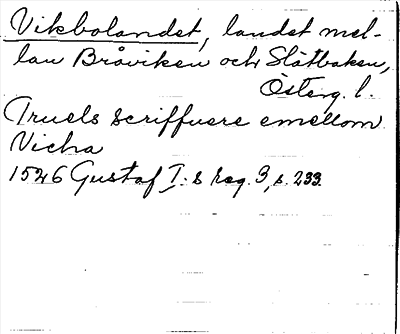 Vikbolandet, landet mel-
lan Bråviken och Slätbaken,
Österg. l.
Truels scriffuere emellom
Vicha
1546 Gustaf I:s Reg. 3, s. 233.